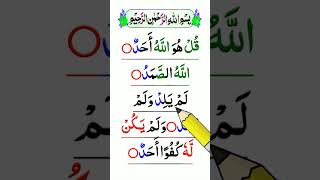 بِسْمِ اللهِ الرَّحْمٰنِ الرَّحِيْمِ
قُلْ هُوَ اللّٰهُ أَحَدٌ ○
اللّٰهُ الصَّمَدُ ○
لَمْ يَلِدْ وَلَمْ
○ وَلَمْ يَكُنْ
لَّهٗ كُفُوًا أَحَدٌ ○